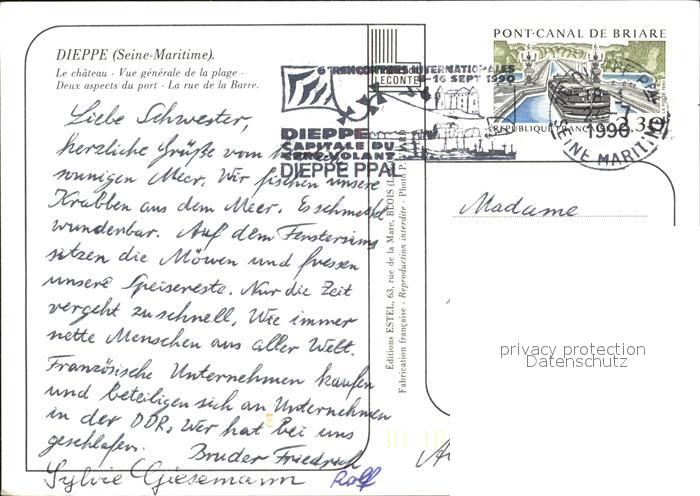 DIEPPE (Seine-Maritime).
Le château - Vue générale de la plage -
Deux aspects du port - La rue de la Barre.
Liebe Schwester,
herzliche Grüße vom
sonnigen Meer. Wir fischen unsere
Krabben aus dem Meer. Es schmeckt
wunderbar. Auf dem Fenstersims
sitzen die Möwen und fressen
unsere Speisereste. Nur die Zeit
vergeht zu schnell. Wie immer
nette Menschen aus aller Welt.
Französische Unternehmen kaufen
und beteiligen sich an Unternehmen
in der DDR. Wer hat bei uns
geschlafen. Bruder Friedrich
Sylvie Giesemann Rolf
Editions ESTEL, 63, rue de la Mare, BLOIS
Fabrication française - Reproduction interdite - Photo
LECONTE
RENCONTRES INTERNATIONALES
16 SEPT 1990
DIEPPE
CAPITALE DU
CERF VOLANT
DIEPPE PPAL
PONT-CANAL DE BRIARE
REPUBLIQUE FRANÇAISE
1990
SEINE MARITIME
Madame
privacy protection
Datenschutz